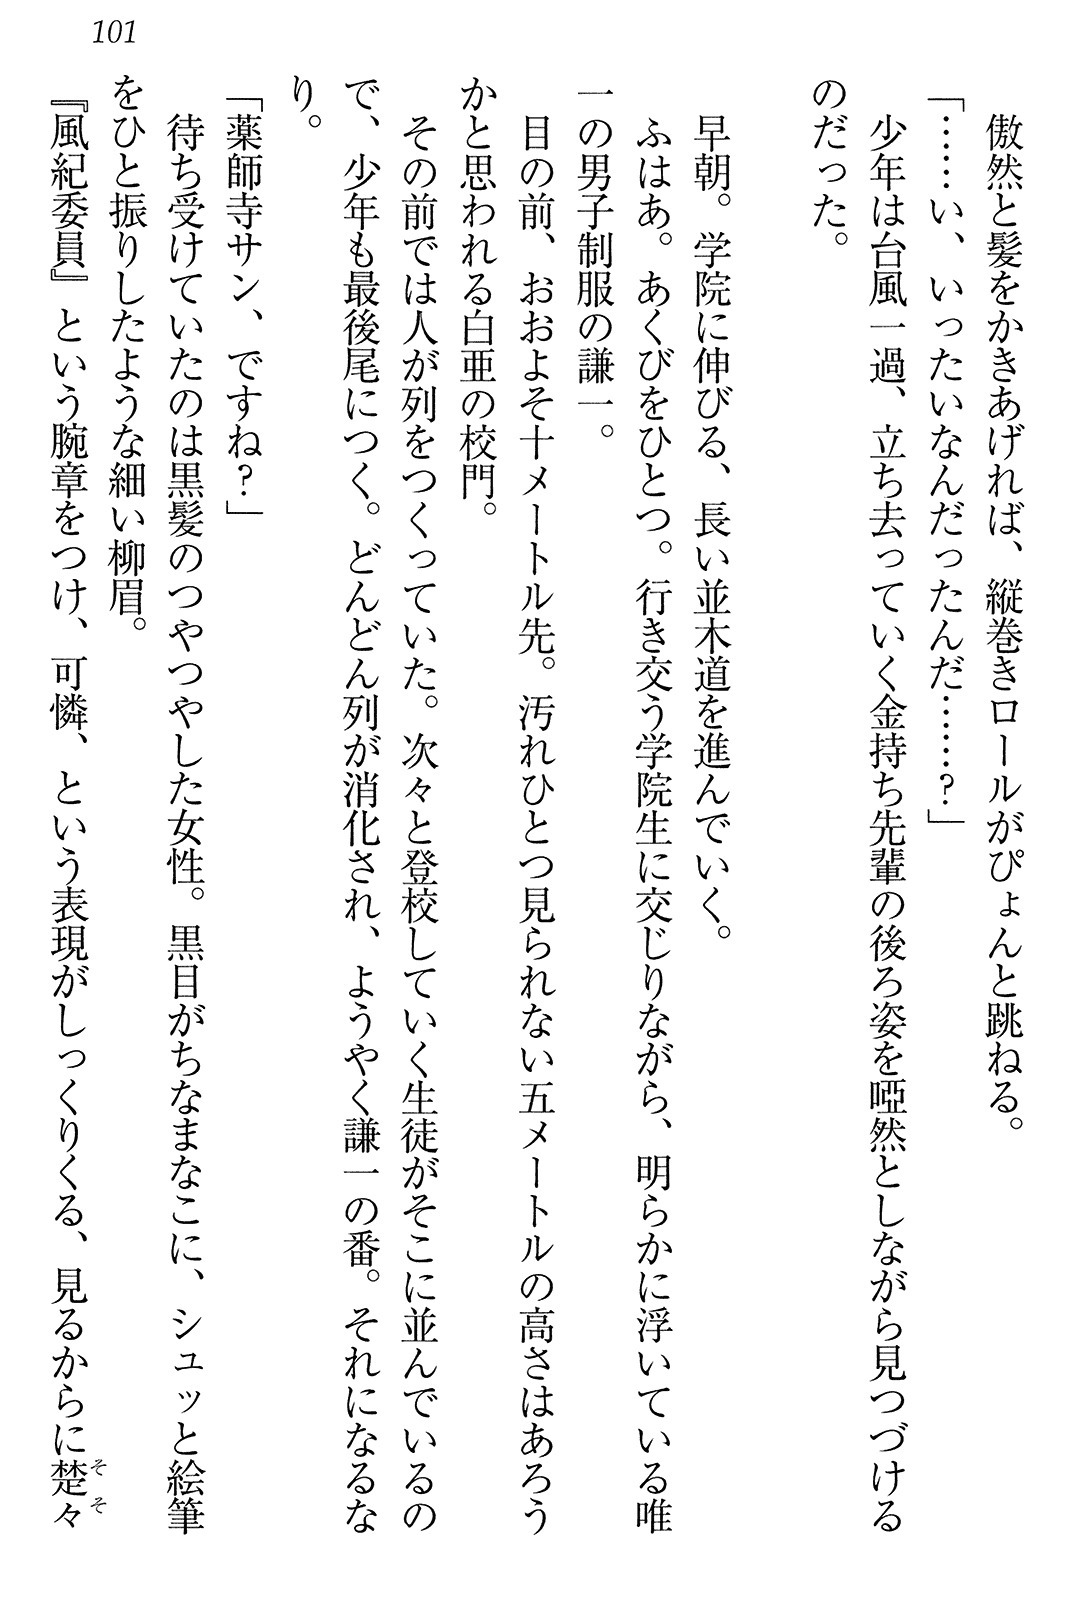 101
傲然と髪をかきあげれば、縦巻きロールがぴょんと跳ねる。
「……い、いったいなんだったんだ……？」
少年は台風一過、立ち去っていく金持ち先輩の後ろ姿を啞然としながら見つづける
のだった。
早朝。学院に伸びる、長い並木道を進んでいく。
ふはあ。あくびをひとつ。行き交う学院生に交じりながら、明らかに浮いている唯
一の男子制服の謙一。
目の前、おおよそ十メートル先。汚れひとつ見られない五メートルの高さはあろう
かと思われる白亜の校門。
その前では人が列をつくっていた。次々と登校していく生徒がそこに並んでいるの
で、少年も最後尾につく。どんどん列が消化され、ようやく謙一の番。それになるな
り。
「薬師寺サン、ですね？」
待ち受けていたのは黒髪のつやつやした女性。黒目がちなまなこに、シュッと絵筆
をひと振りしたような細い柳眉。
『風紀委員』という腕章をつけ、可憐、という表現がしっくりくる、見るからに楚々
そそ